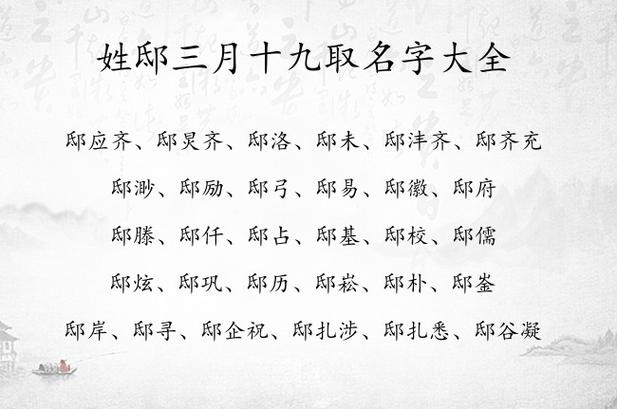 姓邸三月十九取名字大全
邸应齐、邸炅齐、邸洛、邸未、邸沣齐、邸齐充
邸渺、邸励、邸弓、邸易、邸徽、邸府
邸滕、邸仟、邸占、邸基、邸校、邸儒
邸炫、邸巩、邸历、邸崧、邸朴、邸崟
邸岸、邸寻、邸企祝、邸扎涉、邸扎悉、邸谷凝